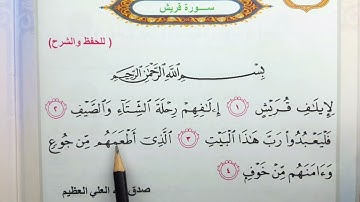 سورة قريش
( للحفظ والشرح )
بِسْمِ اللَّهِ الرَّحْمَٰنِ الرَّحِيمِ
لِإِيلَافِ قُرَيْشٍ ١ إِۦلَافِهِمْ رِحْلَةَ الشِّتَآءِ وَالصَّيْفِ ٢
فَلْيَعْبُدُوا رَبَّ هَٰذَا الْبَيْتِ ٣ الَّذِىٓ أَطْعَمَهُم مِّن جُوعٍ
وَءَامَنَهُم مِّنْ خَوْفٍ ٤
صدق الله العلي العظيم